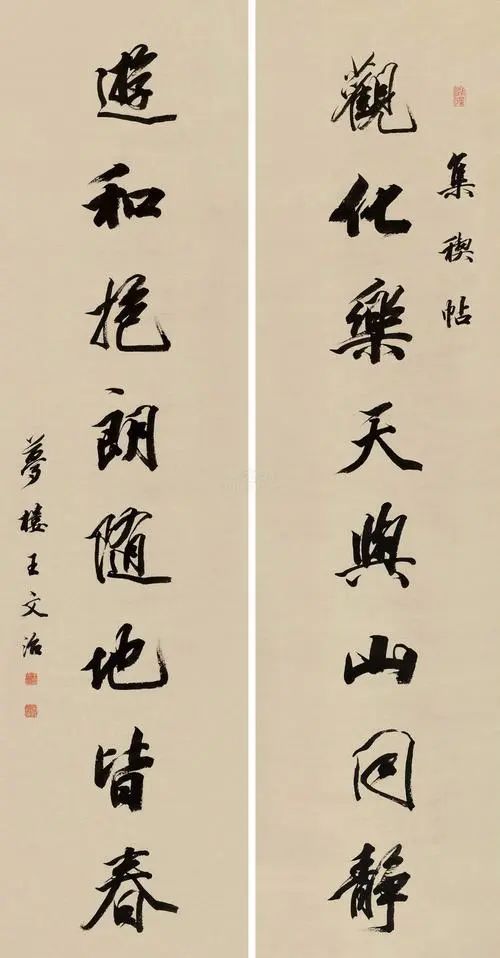 集稧帖
觀化樂天與山同靜
遊和抱朗随地皆春
夢樓王文治